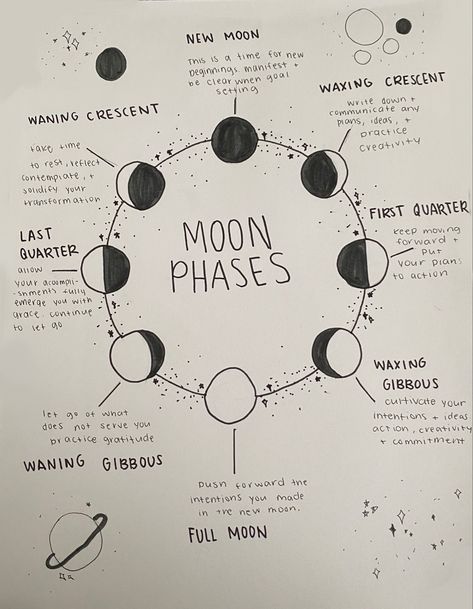 NEW MOON
This is a time for new
beginnings. manifest +
be clear when goal
setting
WAXING CRESCENT
write down +
communicate any
plans, ideas, +
practice
creativity
FIRST QUARTER
keep moving
forward +
put
your plans
to action
WAXING
GIBBOUS
cultivate your
intentions + ideas
action, creativity
+ commitment
FULL MOON
push forward the
intentions you made
in the new moon.
WANING GIBBOUS
let go of what
does not serve you
practice gratitude
LAST
QUARTER
allow
your accompli-
-shments fully
emerge you with
grace. continue
to let go
WANING CRESCENT
take time
to rest, reflect
contemplate, +
solidify your
transformation
MOON
PHASES